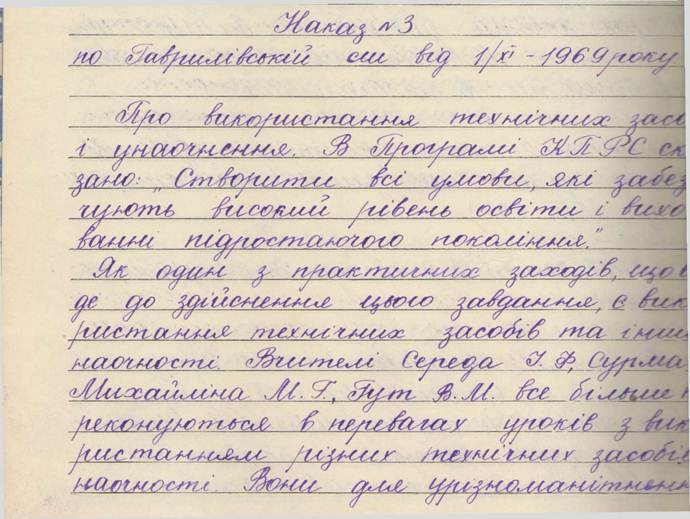 Наказ №3
по Гаврилівській сш від 1/XI - 1969 року
Про використання технічних засо
і унаочнення. В Програмі КПРС ска
зано: „Створити всі умови, які забез
чують високий рівень освіти і вихо
ванні підростаючого покоління."
Як один з практичних заходів, що в
де до здійснення цього завдання, є вик
ристання технічних засобів та інши
наочності. Вчителі Середа Г. Ф., Сурма
Михайліна М. Г., Гут В. М. все більше п
реконуються в перевагах уроків з вик
ристанням різних технічних засобів
наочності. Вони для урізноманітненн